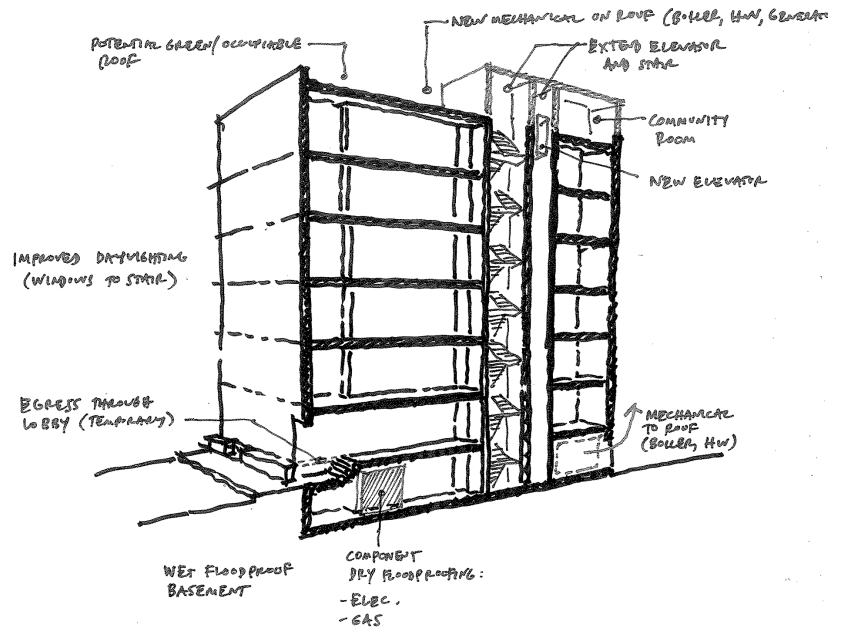 NEW MECHANICAL ON ROOF (BOILER, HW, GENERAT
POTENTIAL GREEN/OCCUPIABLE
ROOF
EXTEND ELEVATOR
AND STAIR
COMMUNITY
ROOM
NEW ELEVATOR
IMPROVED DAYLIGHTING
(WINDOWS TO STAIR)
EGRESS THROUGH
LOBBY (TEMPORARY)
MECHANICAL
TO ROOF
(BOILER, HW)
WET FLOODPROOF
BASEMENT
COMPONENT
DRY FLOODPROOFING:
-ELEC.
-GAS